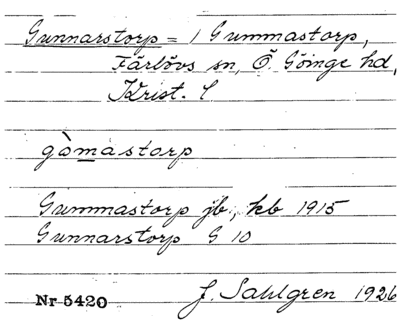 Gunnarstorp = 1 Gummastorp,
Färlövs sn, Ö. Göinge hd,
Krist. l
gòmastorp
Gummastorp jb., kb 1915
Gunnarstorp G 10
Nr 5420 J. Sahlgren 1926